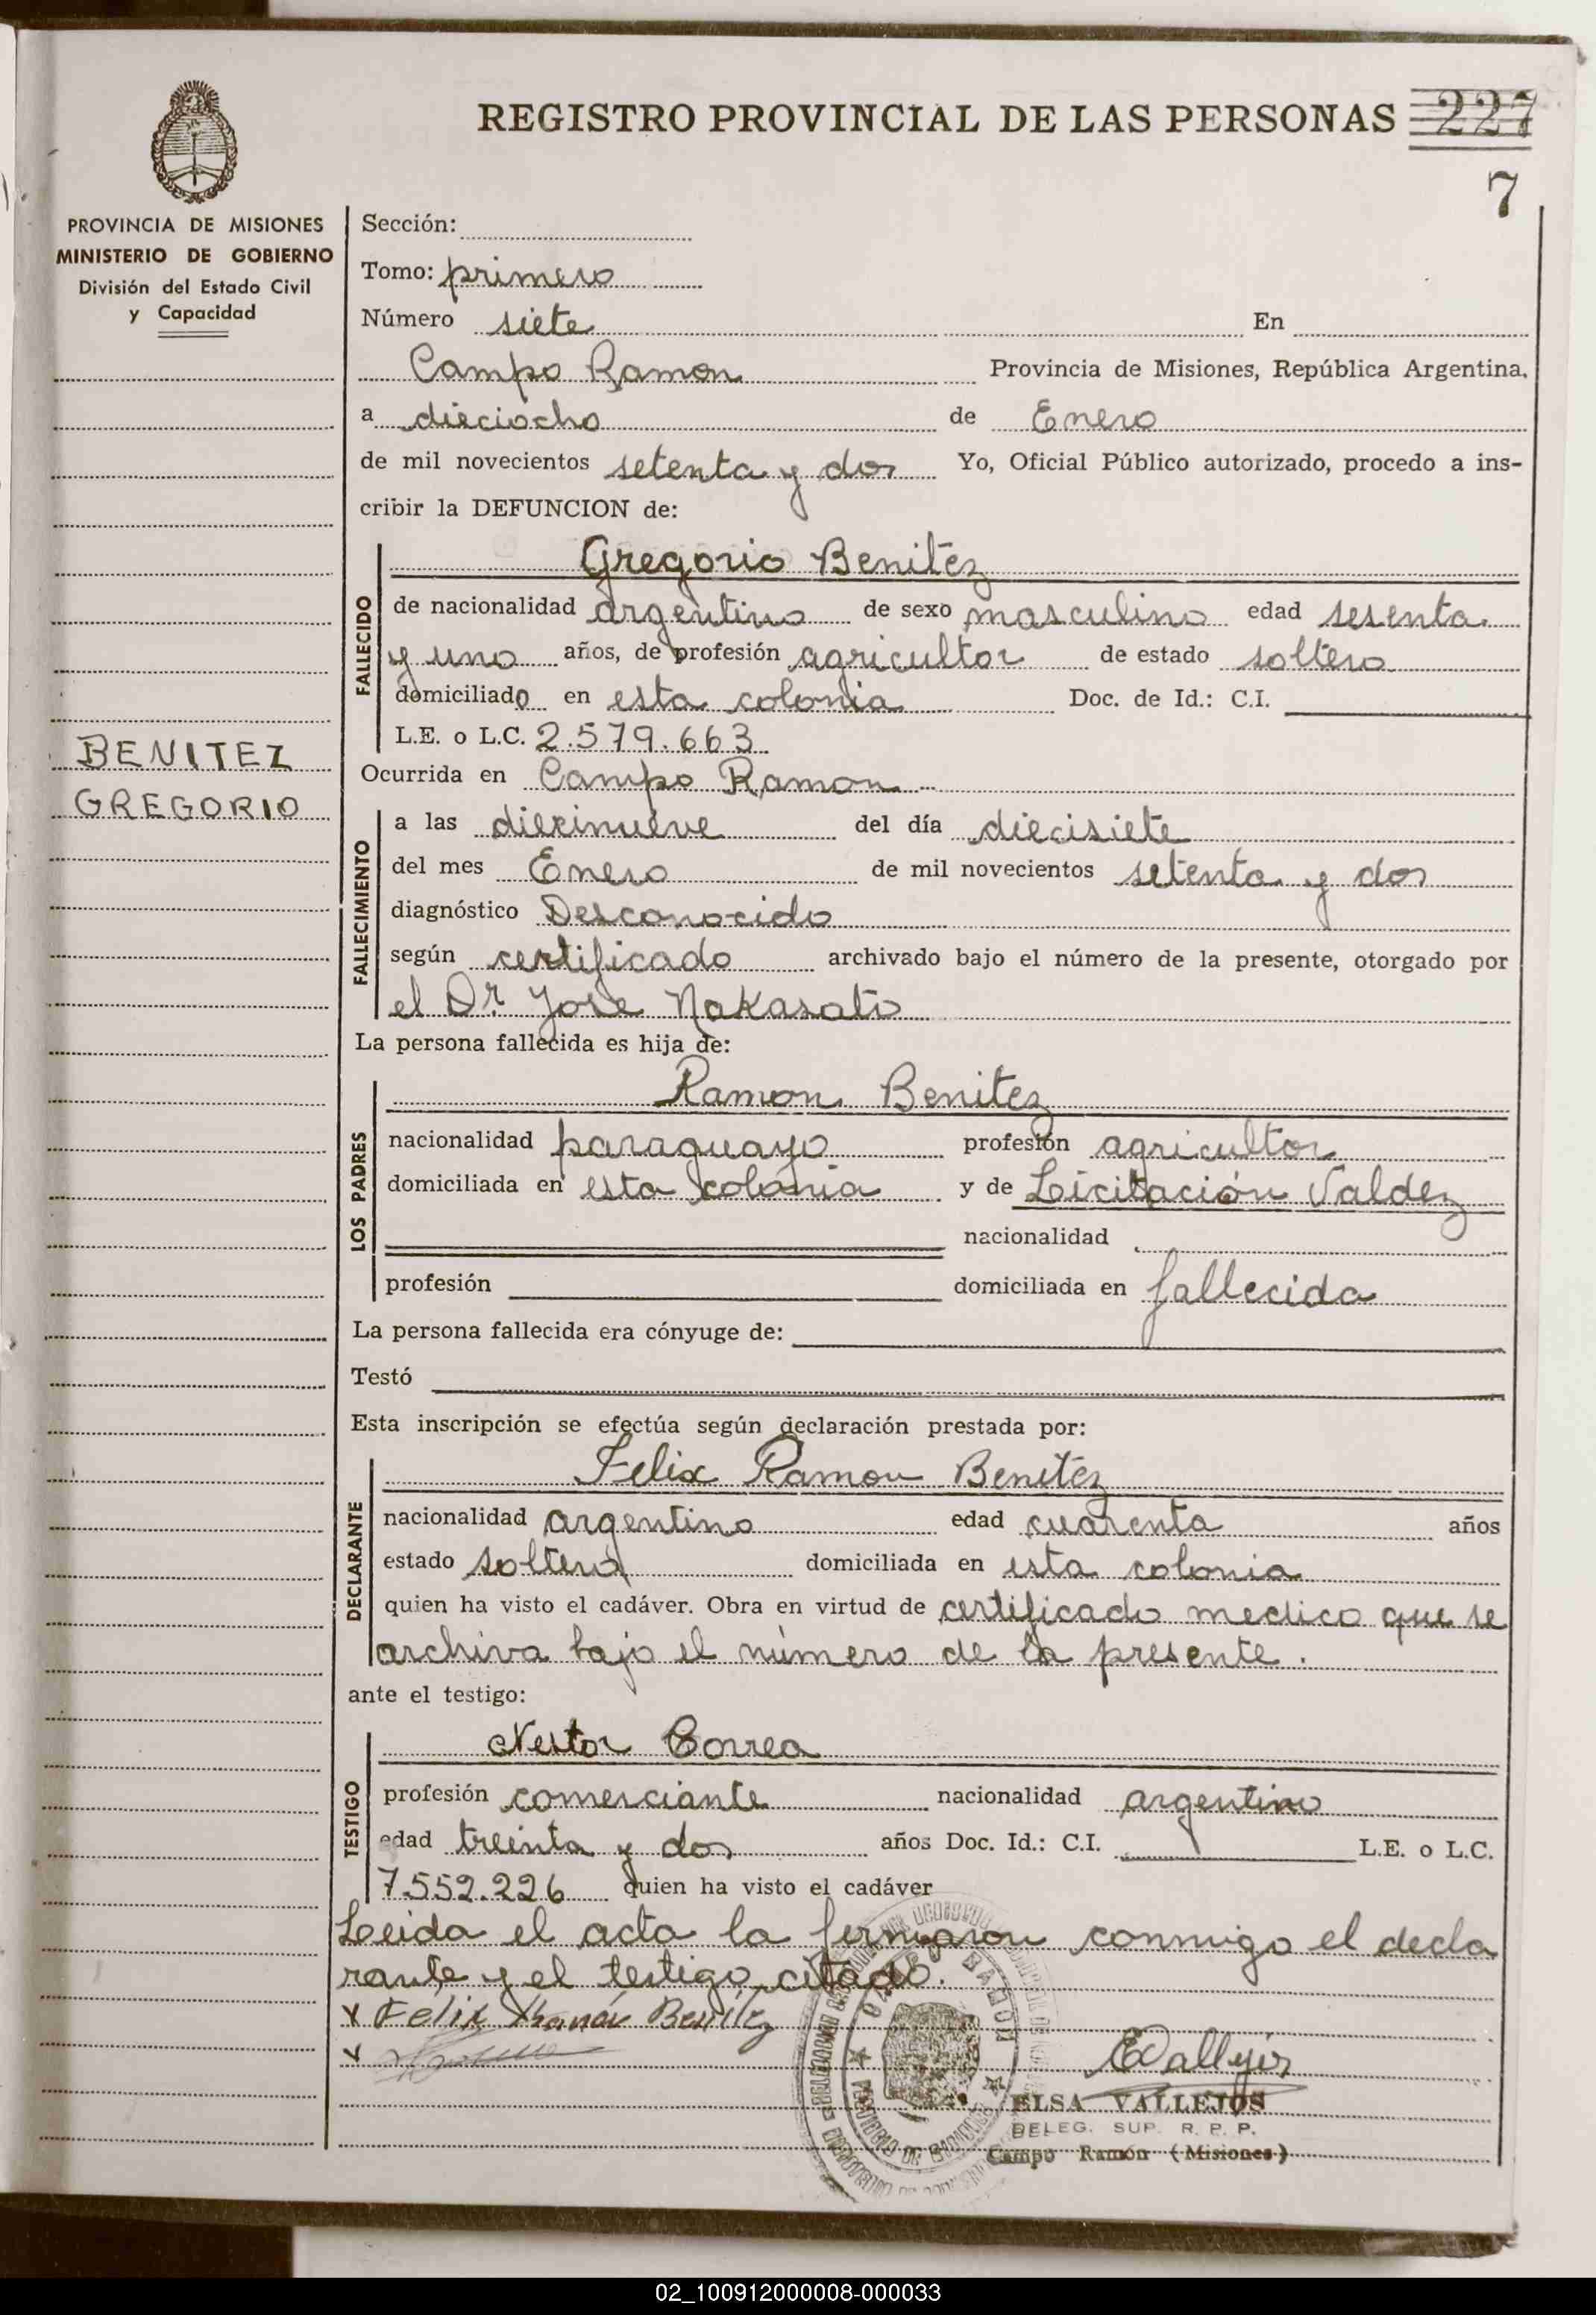 REGISTRO PROVINCIAL DE LAS PERSONAS 227
7
PROVINCIA DE MISIONES
MINISTERIO DE GOBIERNO
División del Estado Civil
y Capacidad
BENITEZ
GREGORIO
Sección:
Tomo: primero
Número siete En
Campo Ramon Provincia de Misiones, República Argentina,
a dieciocho de Enero
de mil novecientos setenta y dos Yo, Oficial Público autorizado, procedo a ins-
cribir la DEFUNCION de:
FALLECIDO
Gregorio Benitez
de nacionalidad argentino de sexo masculino edad sesenta
y uno años, de profesión agricultor de estado soltero
domiciliado en esta colonia Doc. de Id.: C.I.
L.E. o L.C. 2.579.663
Ocurrida en Campo Ramon
FALLECIMIENTO
a las diecinueve del día diecisiete
del mes Enero de mil novecientos setenta y dos
diagnóstico Desconocido
según certificado archivado bajo el número de la presente, otorgado por
el Dr. Jose Nakasato
La persona fallecida es hija de:
LOS PADRES
Ramon Benitez
nacionalidad paraguayo profesión agricultor
domiciliada en esta colonia y de Licitación Valdez
nacionalidad
profesión domiciliada en fallecida
La persona fallecida era cónyuge de:
Testó
Esta inscripción se efectúa según declaración prestada por:
DECLARANTE
Felix Ramon Benitez
nacionalidad argentino edad cuarenta años
estado soltero domiciliada en esta colonia
quien ha visto el cadáver. Obra en virtud de certificado medico que se
archiva bajo el número de la presente.
ante el testigo:
TESTIGO
Nestor Correa
profesión comerciante nacionalidad argentino
edad treinta y dos años Doc. Id.: C.I. L.E. o L.C.
7.552.226 quien ha visto el cadáver
Leida el acta la firmaron conmigo el decla
rante y el testigo citado.
x Felix Ramón Benitez
x
EVallejos
ELSA VALLEJOS
DELEG. SUP. R. P. P.
Campo Ramón (Misiones)
02_100912000008-000033